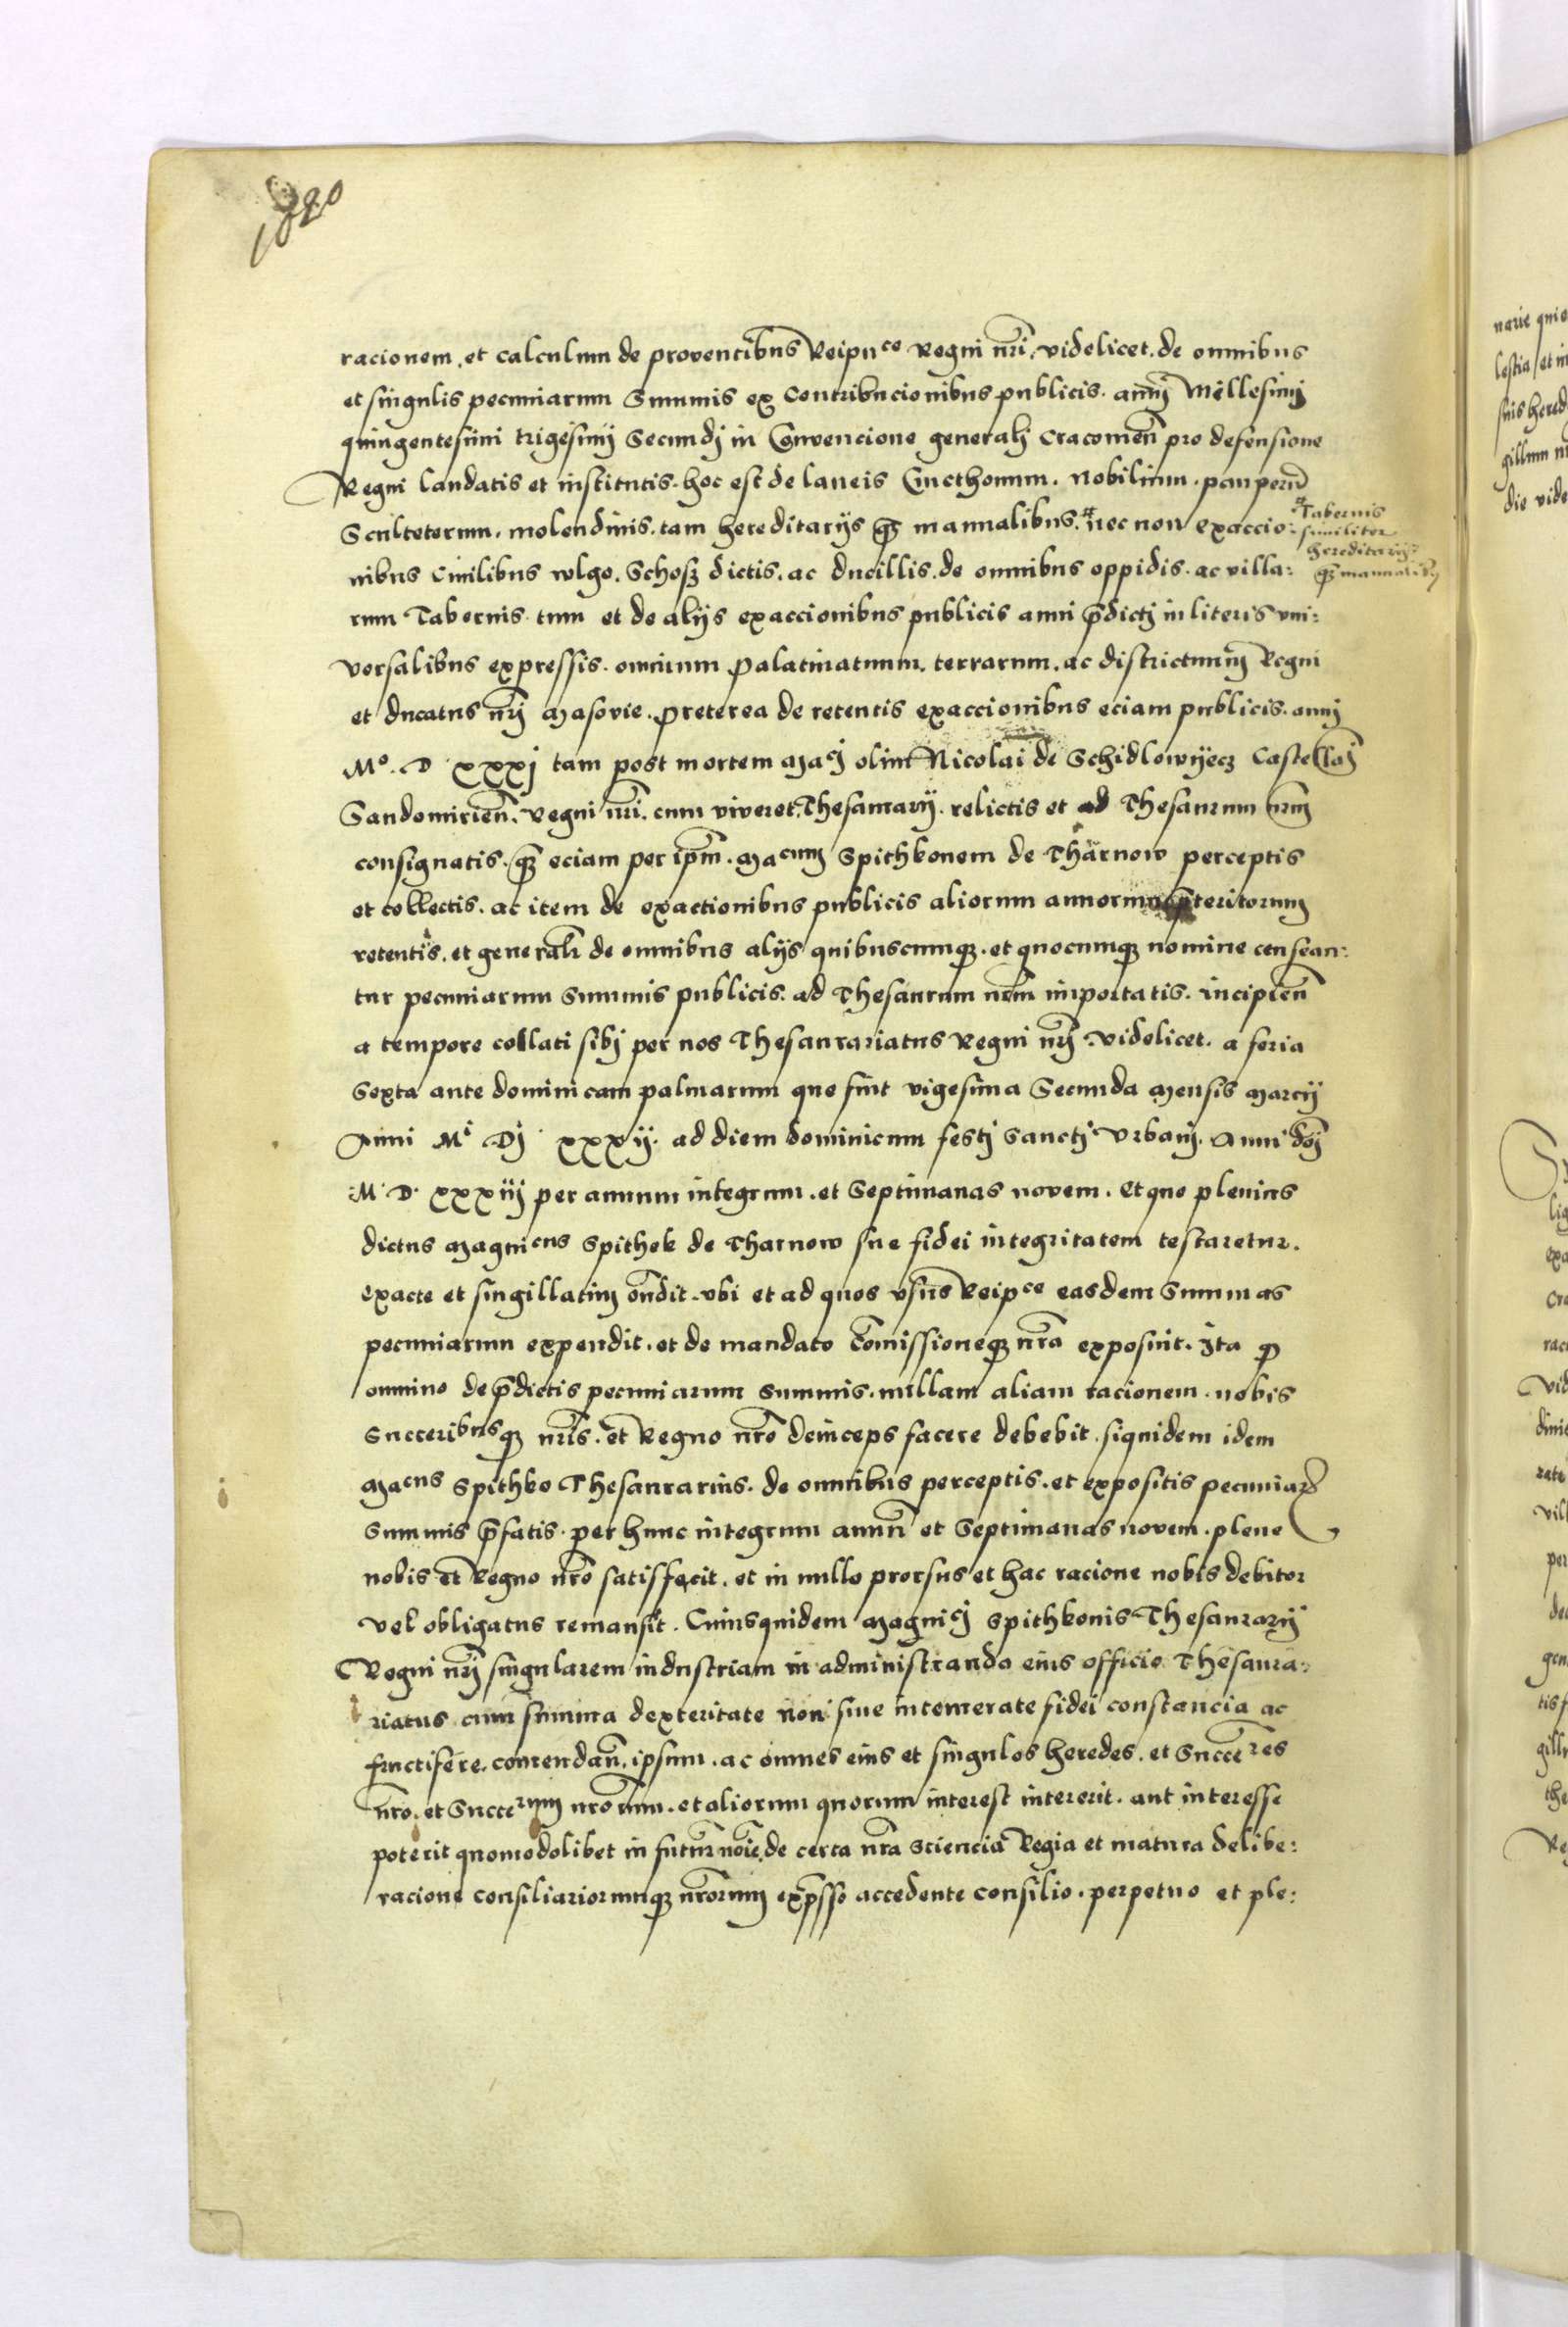 racionem. et calculum de proventibus Reipuce Regni nri. videlicet. de omnibus
et singulis pecuniarum Summis ex Contribucionibus publicis. anni Millesimi
quingentesimi trigesimi Secundi in Convencione generali Cracovien pro defensione
Regni laudatis et institutis. hoc est de laneis Cmethonum. nobilium. pauperu
Scultetorum. molendinis. tam hereditarijs qz manualibus. nec non exaccio:
Tabernis
similiter
hereditarijs
qz manualibus
nibus Civilibus wlgo. Schosz dictis. ac ducillis. de omnibus oppidis. ac villa:
rum Tabernis tum et de alijs exaccionibus publicis anni pdicti in literis vni:
versalibus expressis. omnium palatinatuum. terrarum. ac districtuum Regni
et ducatus nri Masovie. preterea de retentis exaccionibus eciam publicis. anni
Mo. D xxxj tam post mortem Maci olim Nicolai de Schidlowyecz Castellani
Sandomirien. Regni nri. cum viveret. Thesaurarij. relictis et ad Thesaurum nrm
consignatis. qz eciam per ipm. Macum Spithkonem de Tharnow perceptis
et collectis. ac item de exactionibus publicis aliorum annorum pteritorum
retentis. et generali de omnibus alijs quibuscumqz. et quocumqz nomine censean:
tur pecuniarum Summis publicis. ad Thesaurum nrm importatis. incipien
a tempore collati sibi per nos Thesaurariatus Regni nri videlicet. a feria
Sexta ante dominicam palmarum que fuit vigesima Secunda Mensis Marcij
Anni Mi Di xxxij. ad diem dominicum festi Sancti Vrbani. Anni dni
M. D. xxxiij per annum integrum. et Septimanas novem. Et quo plenius
dictus Magnicus Spithek de Tharnow sue fidei integritatem testaretur.
exacte et singillatim ondit. vbi et ad quos vsus Reipce easdem Summas
pecuniarum expendit. et de mandato Comissioneqz nra exposuit. Ita q
omnino de pdictis pecuniarum summis. nullam aliam racionem. nobis
Succeribusqz nris. et Regno nro deinceps facere debebit. siquidem idem
Macus Spithko Thesaurarius. de omnibus perceptis. et expositis pecuniar
Summis pfatis. per hunc integrum annu et Septimanas novem. plene
nobis et Regno nro satisfecit. et in nullo prorsus et hac racione nobis debitor
vel obligatus remansit. Cuiusquidem Magnici Spithkonis Thesaurarij
Regni nri singularem industriam in administrando eius officio Thesaura:
riatus cum summa dexteritate non sine intemerate fidei constancia ac
fructifere. comendan. ipsum. ac omnes eius et singulos heredes. et Succeres
nro. et Succerum nrorum. et aliorum quorum interest intererit. aut interesse
poterit quomodolibet in futur noie. de certa nra sciencia Regia et matura delibe:
racione consiliariorumqz nrorum expsso accedente consilio. perpetuo et ple: